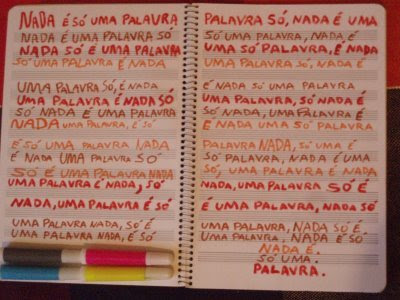 NADA É SÓ UMA PALAVRA
NADA É UMA PALAVRA SÓ
NADA SÓ É UMA PALAVRA
SÓ UMA PALAVRA É NADA
UMA PALAVRA SÓ, É NADA
UMA PALAVRA É NADA SÓ
SÓ NADA É UMA PALAVRA
NADA UMA PALAVRA, É SÓ
É SÓ UMA PALAVRA NADA
É NADA UMA PALAVRA SÓ
SÓ É UMA PALAVRA NADA
UMA PALAVRA É NADA, SÓ
NADA, UMA PALAVRA É SÓ
UMA PALAVRA NADA, SÓ É
UMA PALAVRA NADA, É SÓ
PALAVRA SÓ, NADA É UMA
SÓ UMA PALAVRA, NADA É
UMA SÓ PALAVRA, É NADA
UMA PALAVRA SÓ, NADA É
É NADA SÓ UMA PALAVRA
UMA PALAVRA, SÓ NADA É
SÓ NADA, UMA PALAVRA É
É NADA UMA SÓ PALAVRA
PALAVRA NADA, SÓ UMA É
SÓ PALAVRA, NADA É UMA
SÓ, UMA PALAVRA É NADA
NADA, UMA PALAVRA SÓ É
É UMA PALAVRA, NADA SÓ
UMA PALAVRA, NADA SÓ É
UMA PALAVRA, NADA É SÓ
NADA É.
SÓ UMA.
PALAVRA.